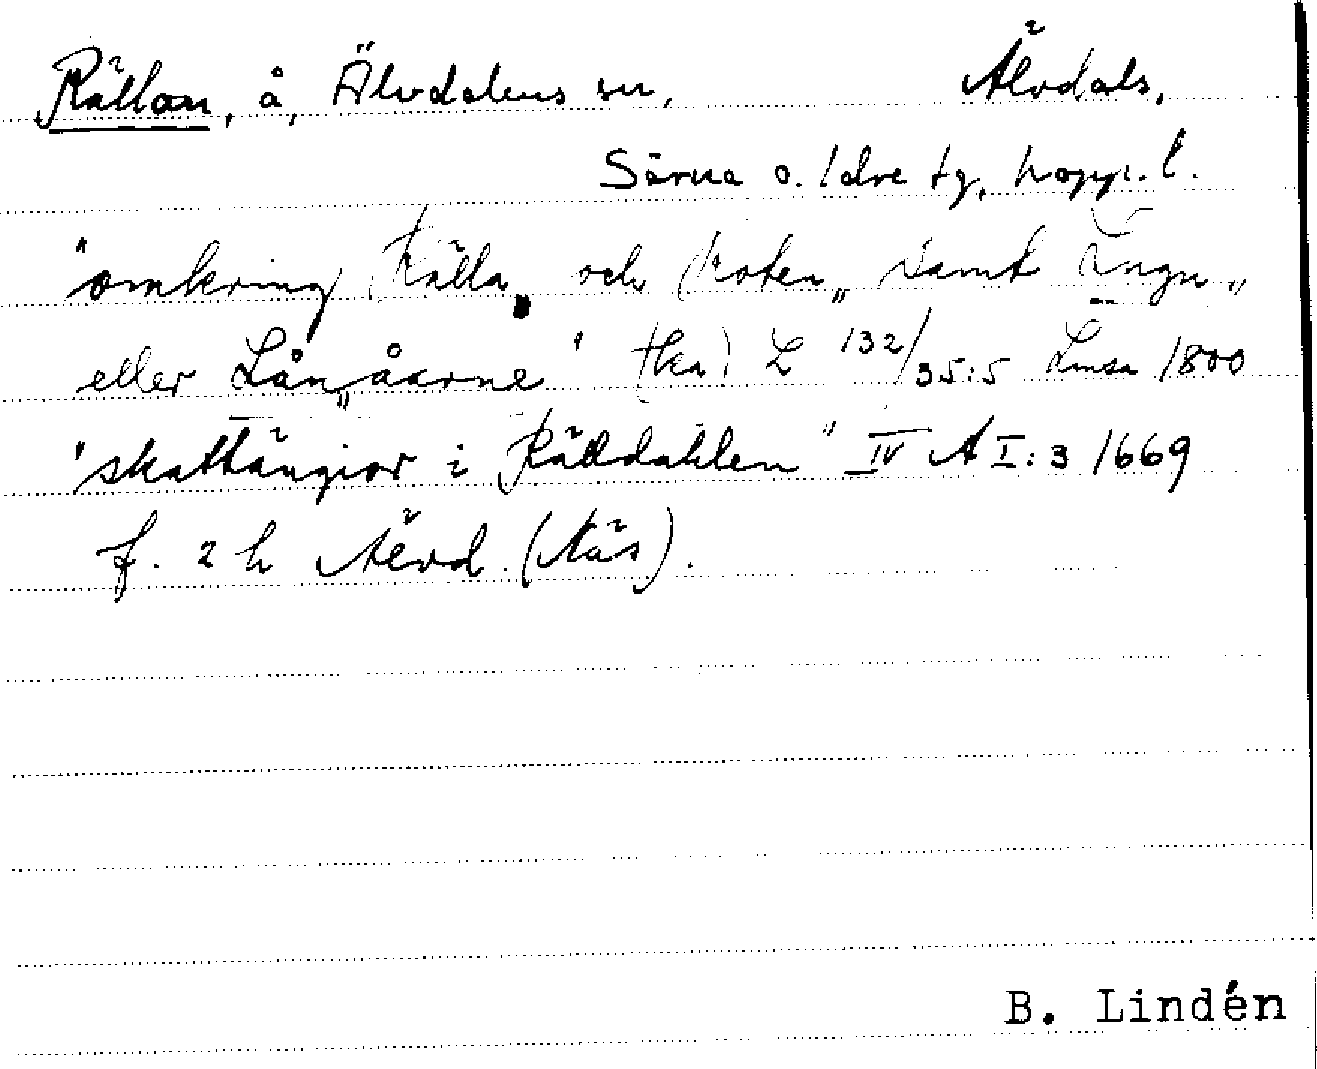 Rällan, å, Älvdalens sn, Älvdals,
Särna o. Idre tg, Kopp. l.
"omkring Rälla„ och Roten„ samt Långn„
eller Lån„åarne" (ka) L 132/35:5 Lmsa 1800
"skattängior i Rälldahlen" IV A I:3 1669
f. 2 h Älvd. (Näs).
B. Lindén